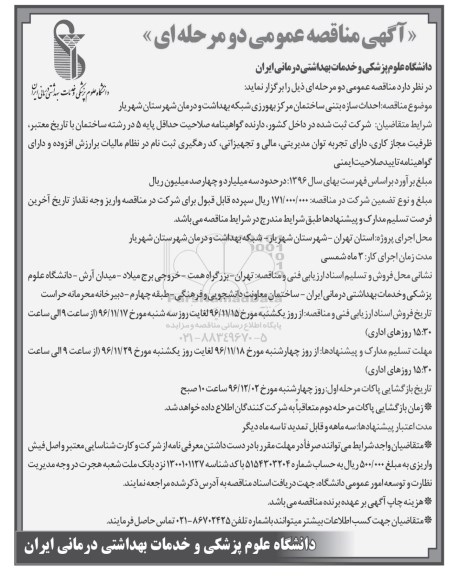 «آگهی مناقصه عمومی دو مرحله ای»
دانشگاه علوم پزشکی و خدمات بهداشتی درمانی ایران
دانشگاه علوم پزشکی و خدمات بهداشتی درمانی ایران
در نظر دارد مناقصه عمومی دو مرحله ای ذیل را برگزار نماید:
موضوع مناقصه: احداث سازه بتنی ساختمان مرکز بهورزی شبکه بهداشت و درمان شهرستان شهریار
شرایط متقاضیان: شرکت ثبت شده در داخل کشور، دارنده گواهینامه صلاحیت حداقل پایه ۵ در رشته ساختمان با تاریخ معتبر،
ظرفیت مجاز کاری، دارای تجربه توان مدیریتی، مالی و تجهیزاتی، کد رهگیری ثبت نام در نظام مالیات برارزش افزوده و دارای
گواهینامه تایید صلاحیت ایمنی
مبلغ برآورد براساس فهرست بهای سال ۱۳۹۶: در حدود سه میلیارد و چهارصد میلیون ریال
مبلغ و نوع تضمین شرکت در مناقصه: ۱۷۱/۰۰۰/۰۰۰ ریال سپرده قابل قبول برای شرکت در مناقصه واریز وجه نقد از تاریخ آخرین
فرصت تسلیم مدارک و پیشنهادها طبق شرایط مندرج در شرایط مناقصه می باشد.
محل اجرای پروژه: استان تهران - شهرستان شهریار - شبکه بهداشت و درمان شهرستان شهریار
مدت زمان اجرای کار: ۳ ماه شمسی
نشانی محل فروش و تسلیم اسناد ارزیابی فنی و مناقصه: تهران - بزرگراه همت - خروجی برج میلاد - میدان آرش - دانشگاه علوم
پزشکی و خدمات بهداشتی درمانی ایران - ساختمان معاونت دانشجویی و فرهنگی - طبقه چهارم - دبیرخانه محرمانه حراست
تاریخ فروش اسناد ارزیابی فنی و مناقصه: از روز یکشنبه مورخ ۹۶/۱۱/۱۵ لغایت روز سه شنبه مورخ ۹۶/۱۱/۱۷ (از ساعت ۹ الی ساعت
۱۵:۳۰ روزهای اداری)
پایگاه اطلاع رسانی مناقصه و مزایده
۰۲۱-۸۸۳۴۹۶۷۰-۵
مهلت تسلیم مدارک و پیشنهادها: از روز چهارشنبه مورخ ۹۶/۱۱/۱۸ لغایت روز یکشنبه مورخ ۹۶/۱۱/۲۹ (از ساعت ۹ الی ساعت
۱۵:۳۰ روزهای اداری)
تاریخ بازگشایی پاکات مرحله اول: روز چهارشنبه مورخ ۹۶/۱۲/۰۲ ساعت ۱۰ صبح
* زمان بازگشایی پاکات مرحله دوم متعاقباً به شرکت کنندگان اطلاع داده خواهد شد.
مدت اعتبار پیشنهادها: سه ماهه و قابل تمدید تا سه ماه دیگر
* متقاضیان واجد شرایط می توانند صرفاً در مهلت مقرر با در دست داشتن معرفی نامه از شرکت و کارت شناسایی معتبر و اصل فیش
واریزی به مبلغ ۵۰۰/۰۰۰ ریال به حساب شماره ۵۱۵۴۳۰۳۲۰۴ با کد شناسه ۱۳۰۰۱۰۱۱۲۷ نزد بانک ملت شعبه هجرت در وجه مدیریت
نظارت و توسعه امور عمومی دانشگاه، جهت دریافت اسناد مناقصه به آدرس ذکر شده مراجعه نمایند.
* هزینه چاپ آگهی بر عهده برنده مناقصه می باشد.
* متقاضیان جهت کسب اطلاعات بیشتر میتوانند با شماره تلفن ۸۶۷۰۲۴۲۵-۰۲۱ تماس حاصل فرمایند.
دانشگاه علوم پزشکی و خدمات بهداشتی درمانی ایران